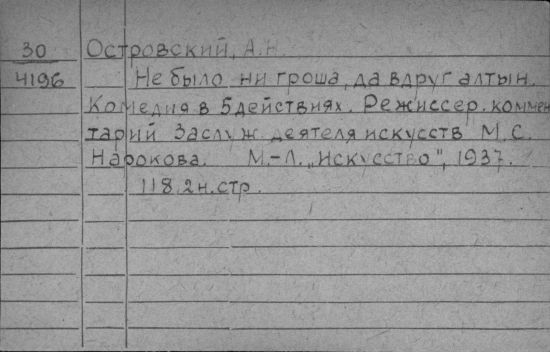 30 Островский, А.Н.
4196 Не было ни гроша, да вдруг алтын.
Комедия в 5 действиях. Режиссер. коммен
тарий Заслуж. деятеля искусств М. С.
Нарокова. М.-Л. „Искусство", 1937.
118, 2 н. стр.